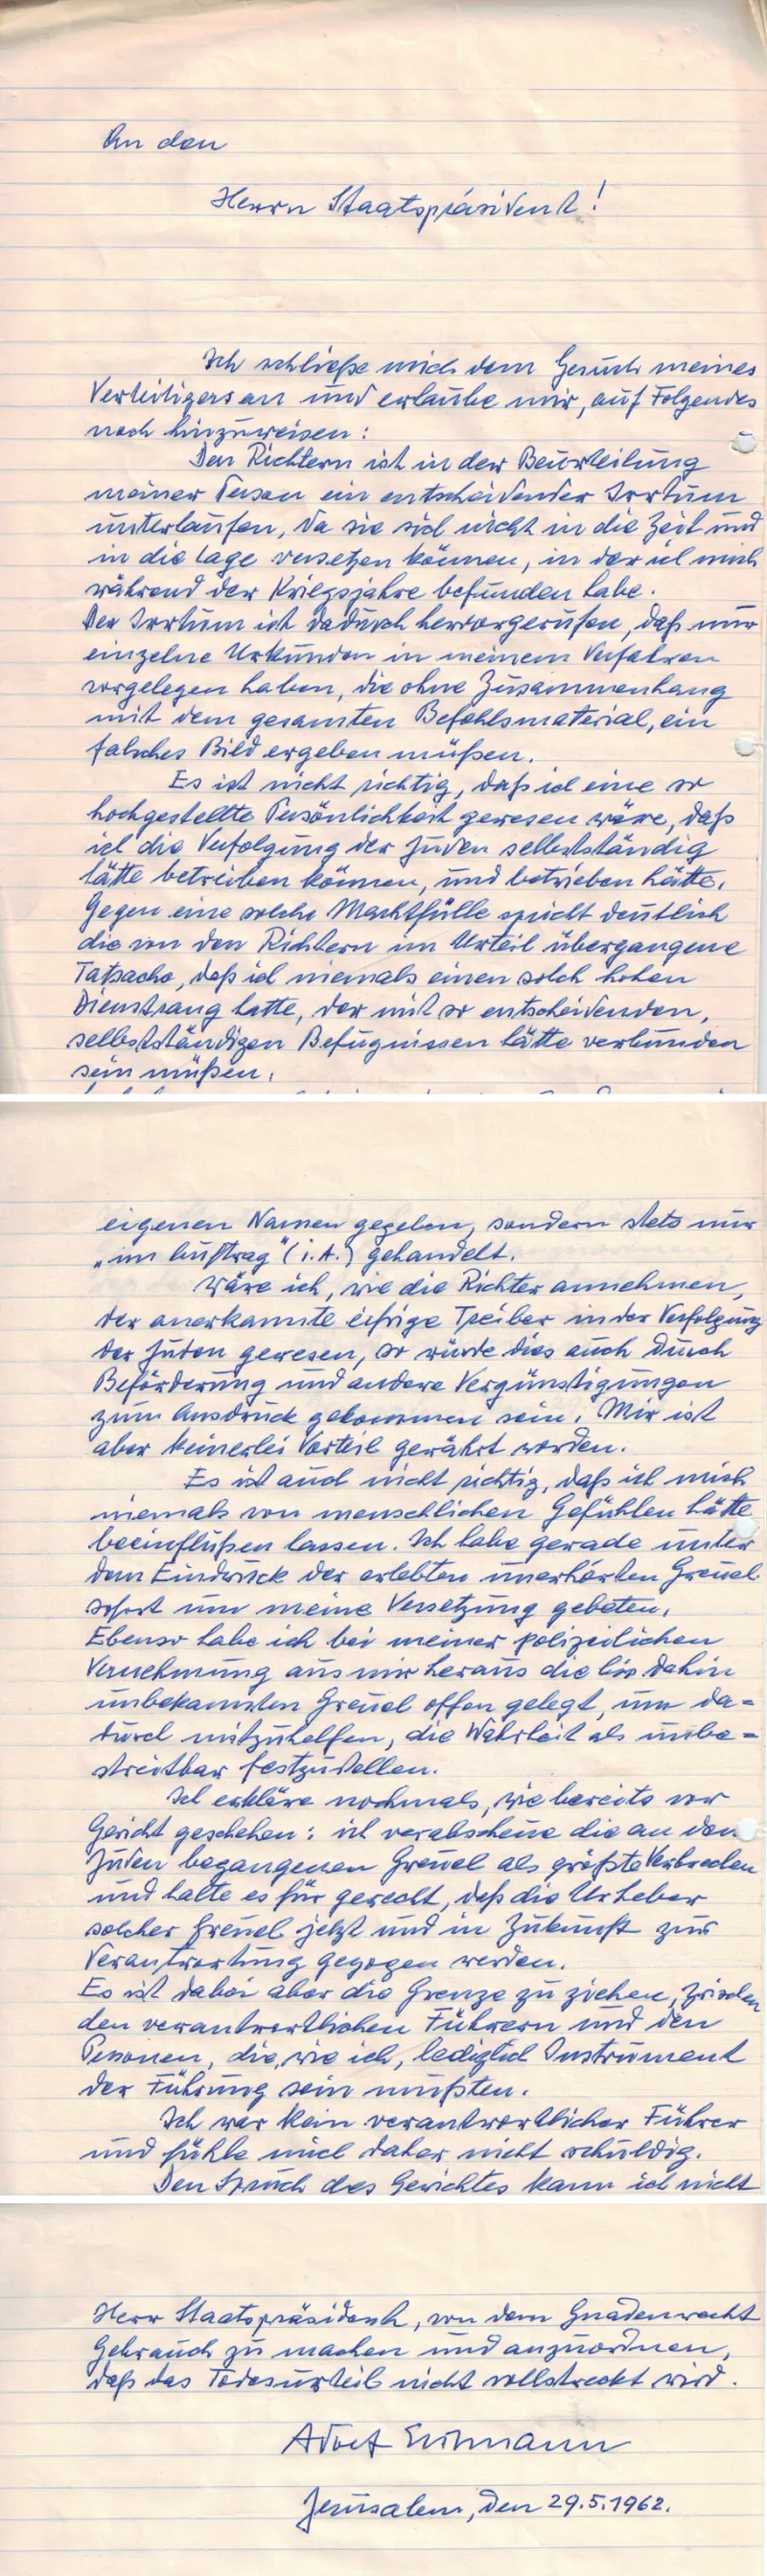 An den
Herrn Staatspräsident!
Ich schließe mich dem Gesuch meines
Verteitigers an und erlaube mir, auf Folgendes
noch hinzuweisen:
Den Richtern ist in der Beurteilung
meiner Person ein entscheidender Irrtum
unterlaufen, da sie sich nicht in die Zeit und
in die Lage versetzen können, in der ich mich
während der Kriegsjahre befunden habe.
Der Irrtum ist dadurch hervorgerufen, daß nur
einzelne Urkunden in meinem Verfahren
vorgelegen haben, die ohne Zusammenhang
mit dem gesamten Befehlsmaterial, ein
falsches Bild ergeben müßen.
Es ist nicht richtig, daß ich eine so
hochgestellte Persönlichkeit gewesen wäre, daß
ich die Verfolgung der Juden selbstständig
hätte betreiben können, und betrieben hätte.
Gegen eine solche Machtfülle spricht deutlich
die von den Richtern im Urteil übergangene
Tatsache, daß ich niemals einen solch hohen
Dienstrang hatte, der mit so entscheidenden,
selbstständigen Befugnissen hätte verbunden
sein müßen.
eigenen Namen gegeben, sondern stets nur
„im Auftrag“ (i.A.) gehandelt.
Wäre ich, wie die Richter annehmen,
der anerkannte eifrige Treiber in der Verfolgung
der Juden gewesen, so würde dies auch durch
Beförderung und andere Vergünstigungen
zum Ausdruck gekommen sein. Mir ist
aber keinerlei Vorteil gewährt worden.
Es ist auch nicht richtig, daß ich mich
niemals von menschlichen Gefühlen hätte
beeinflußen lassen. Ich habe gerade unter
dem Eindruck der erlebten unerhörten Greuel
sofort um meine Versetzung gebeten.
Ebenso habe ich bei meiner polizeilichen
Vernehmung aus mir heraus die bis dahin
unbekannten Greuel offen gelegt, um da=
durch mitzuhelfen, die Wahrheit als unbe=
streitbar festzustellen.
Ich erkläre nochmals, wie bereits vor
Gericht geschehen: ich verabscheue die an den
Juden begangenen Greuel als größte Verbrechen
und halte es für gerecht, daß die Urheber
solcher Greuel jetzt und in Zukunft zur
Verantwortung gezogen werden.
Es ist dabei aber die Grenze zu ziehen, zwischen
den verantwortlichen Führern und den
Personen, die, wie ich, lediglich Instrument
der Führung sein mußten.
Ich war kein verantwortlicher Führer
und fühle mich daher nicht schuldig.
Den Spruch des Gerichtes kann ich nicht
Herr Staatspräsident, von dem Gnadenrecht
Gebrauch zu machen und anzuordnen,
daß das Todesurteil nicht vollstreckt wird.
Adolf Eichmann
Jerusalem, den 29.5.1962.